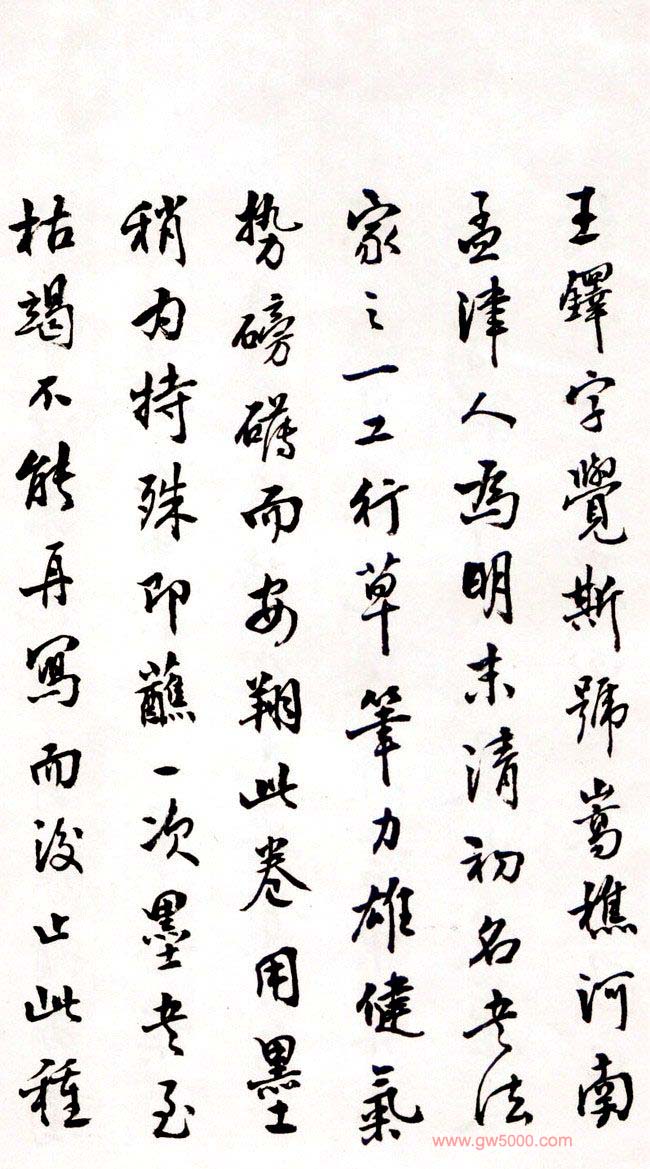 王鐸字覺斯號嵩樵河南
孟津人為明末清初名书法
家之一工行草筆力雄健氣
势磅礴而安翔此卷用墨
稍为特殊即蘸一次墨书至
枯竭不能再寫而後止此種
www.gw5000.com